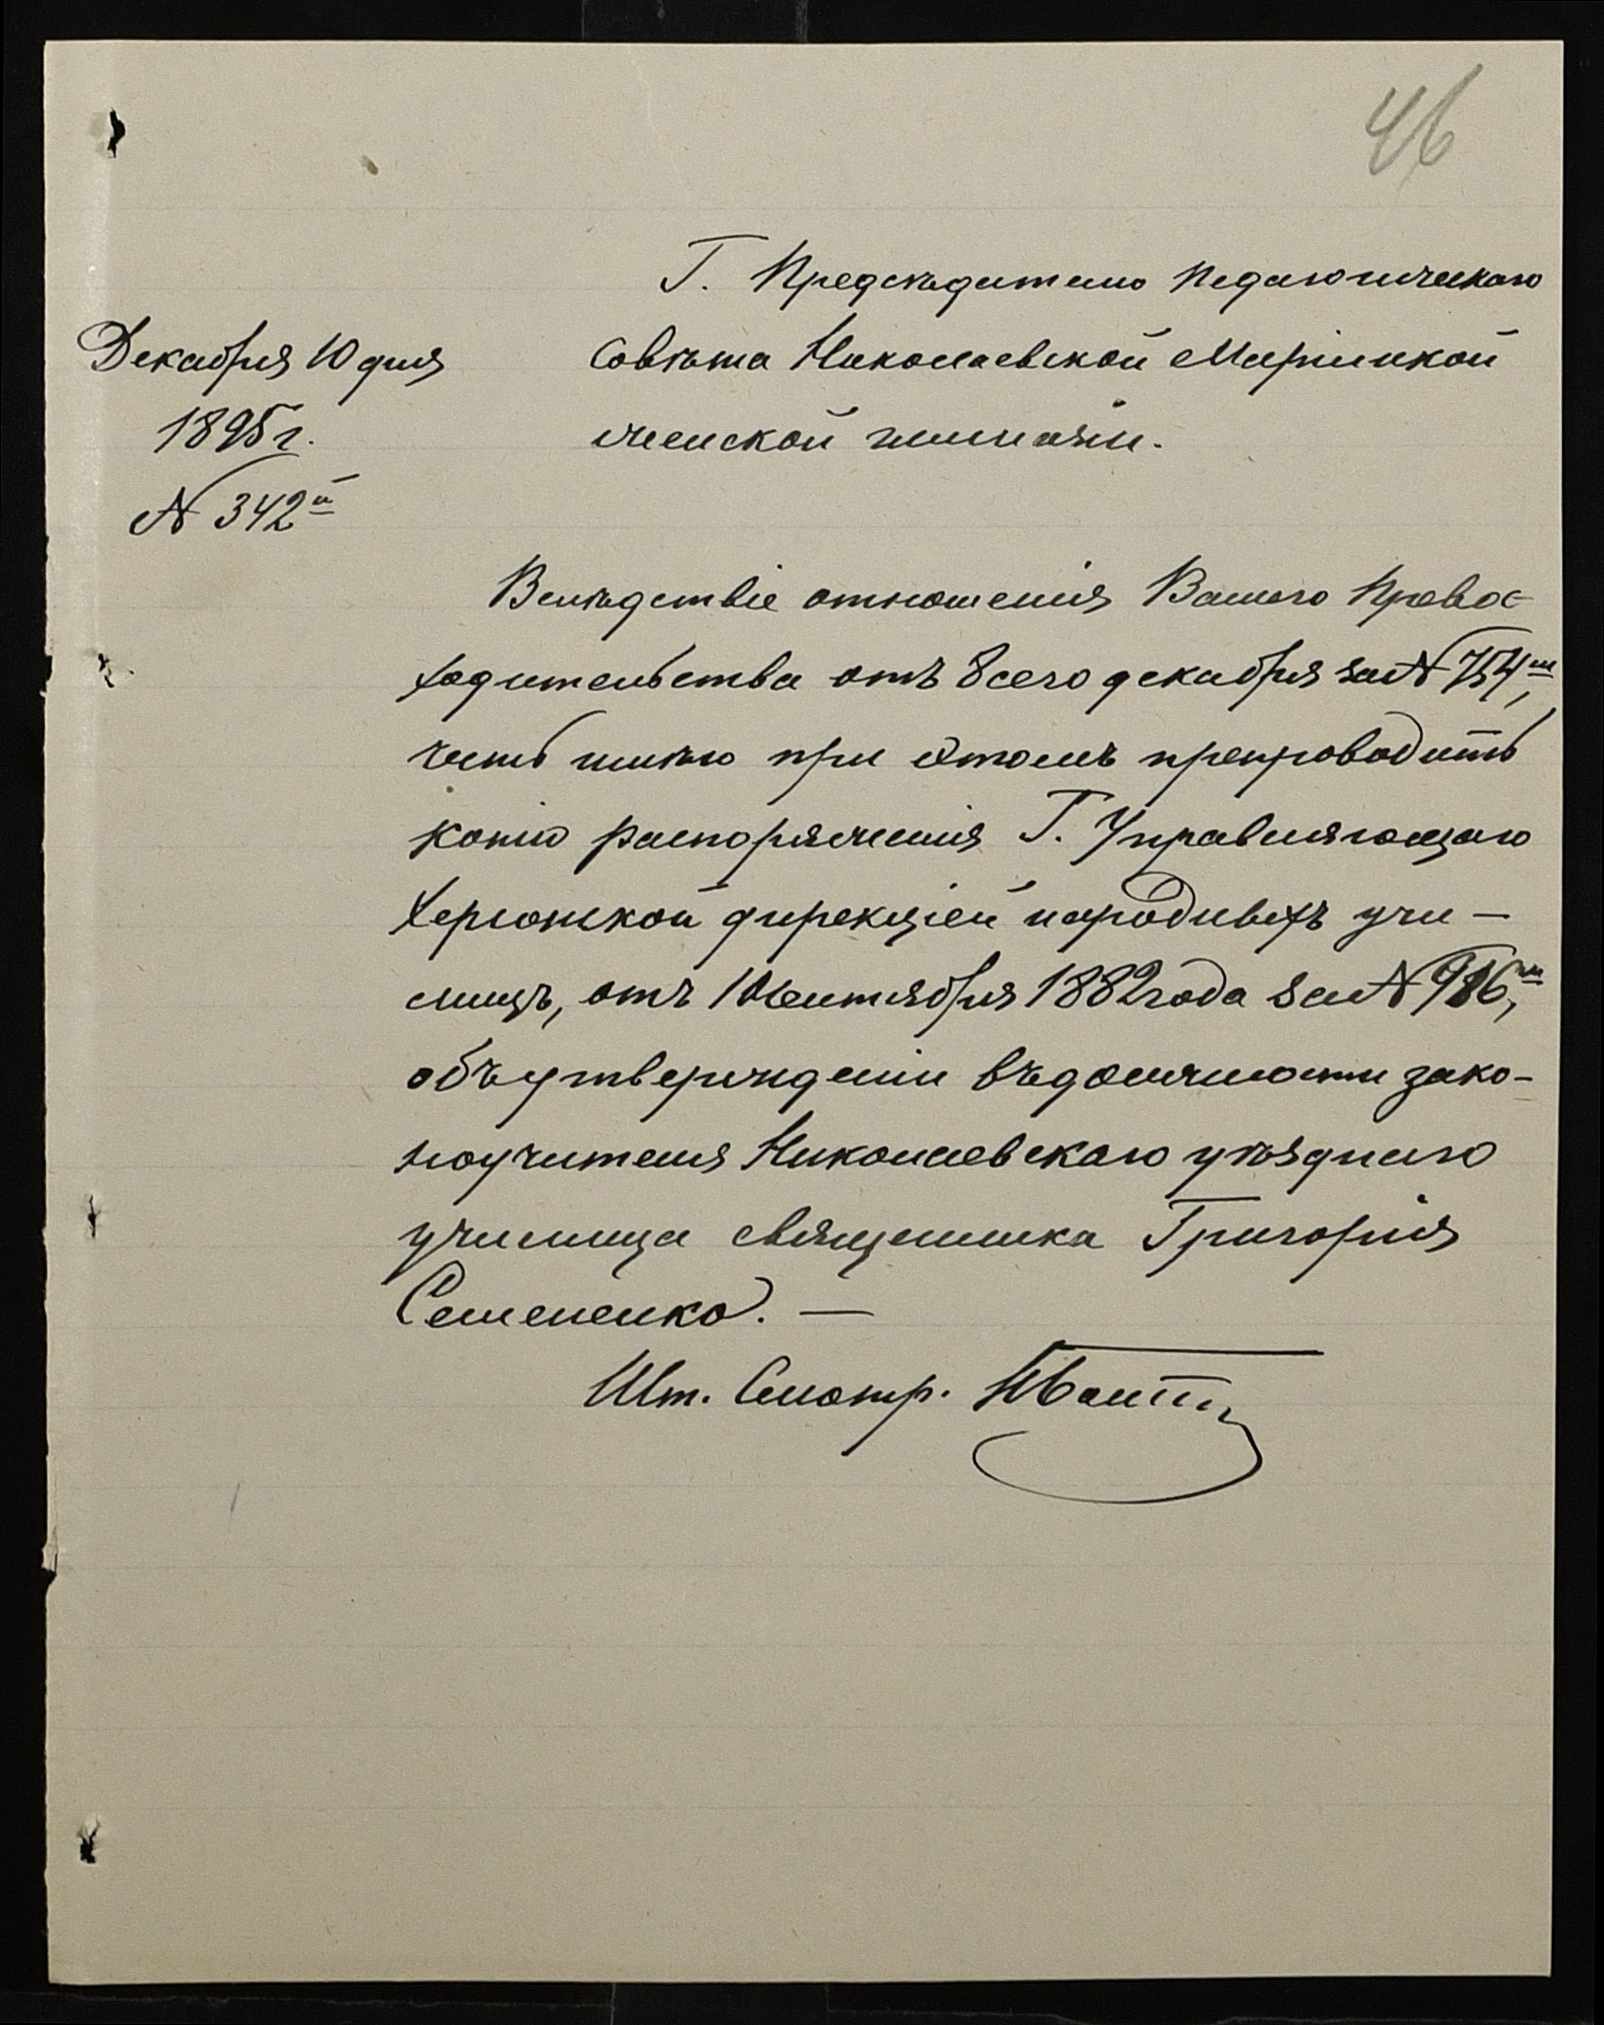 46
Г. Предсѣдателю Педагогическаго
Декабря 10 дня
Совѣта Николаевской Маріинской
1895 г.
женской гимназіи.
№ 342й
Вслѣдствіе отношенія Вашего Превос-
ходительства отъ 8 сего декабря за № 754мъ,
честь имѣю при этомъ препроводить
копію распоряженія Г. Управляющаго
Херсонской дирекціей народныхъ учи-
лищъ, отъ 10 сентября 1882 года за № 986мъ,
объ утвержденіи въ должности зако-
ноучителя Николаевскаго уѣзднаго
училища священника Григорія
Семененко. —
Шт. Смотр.